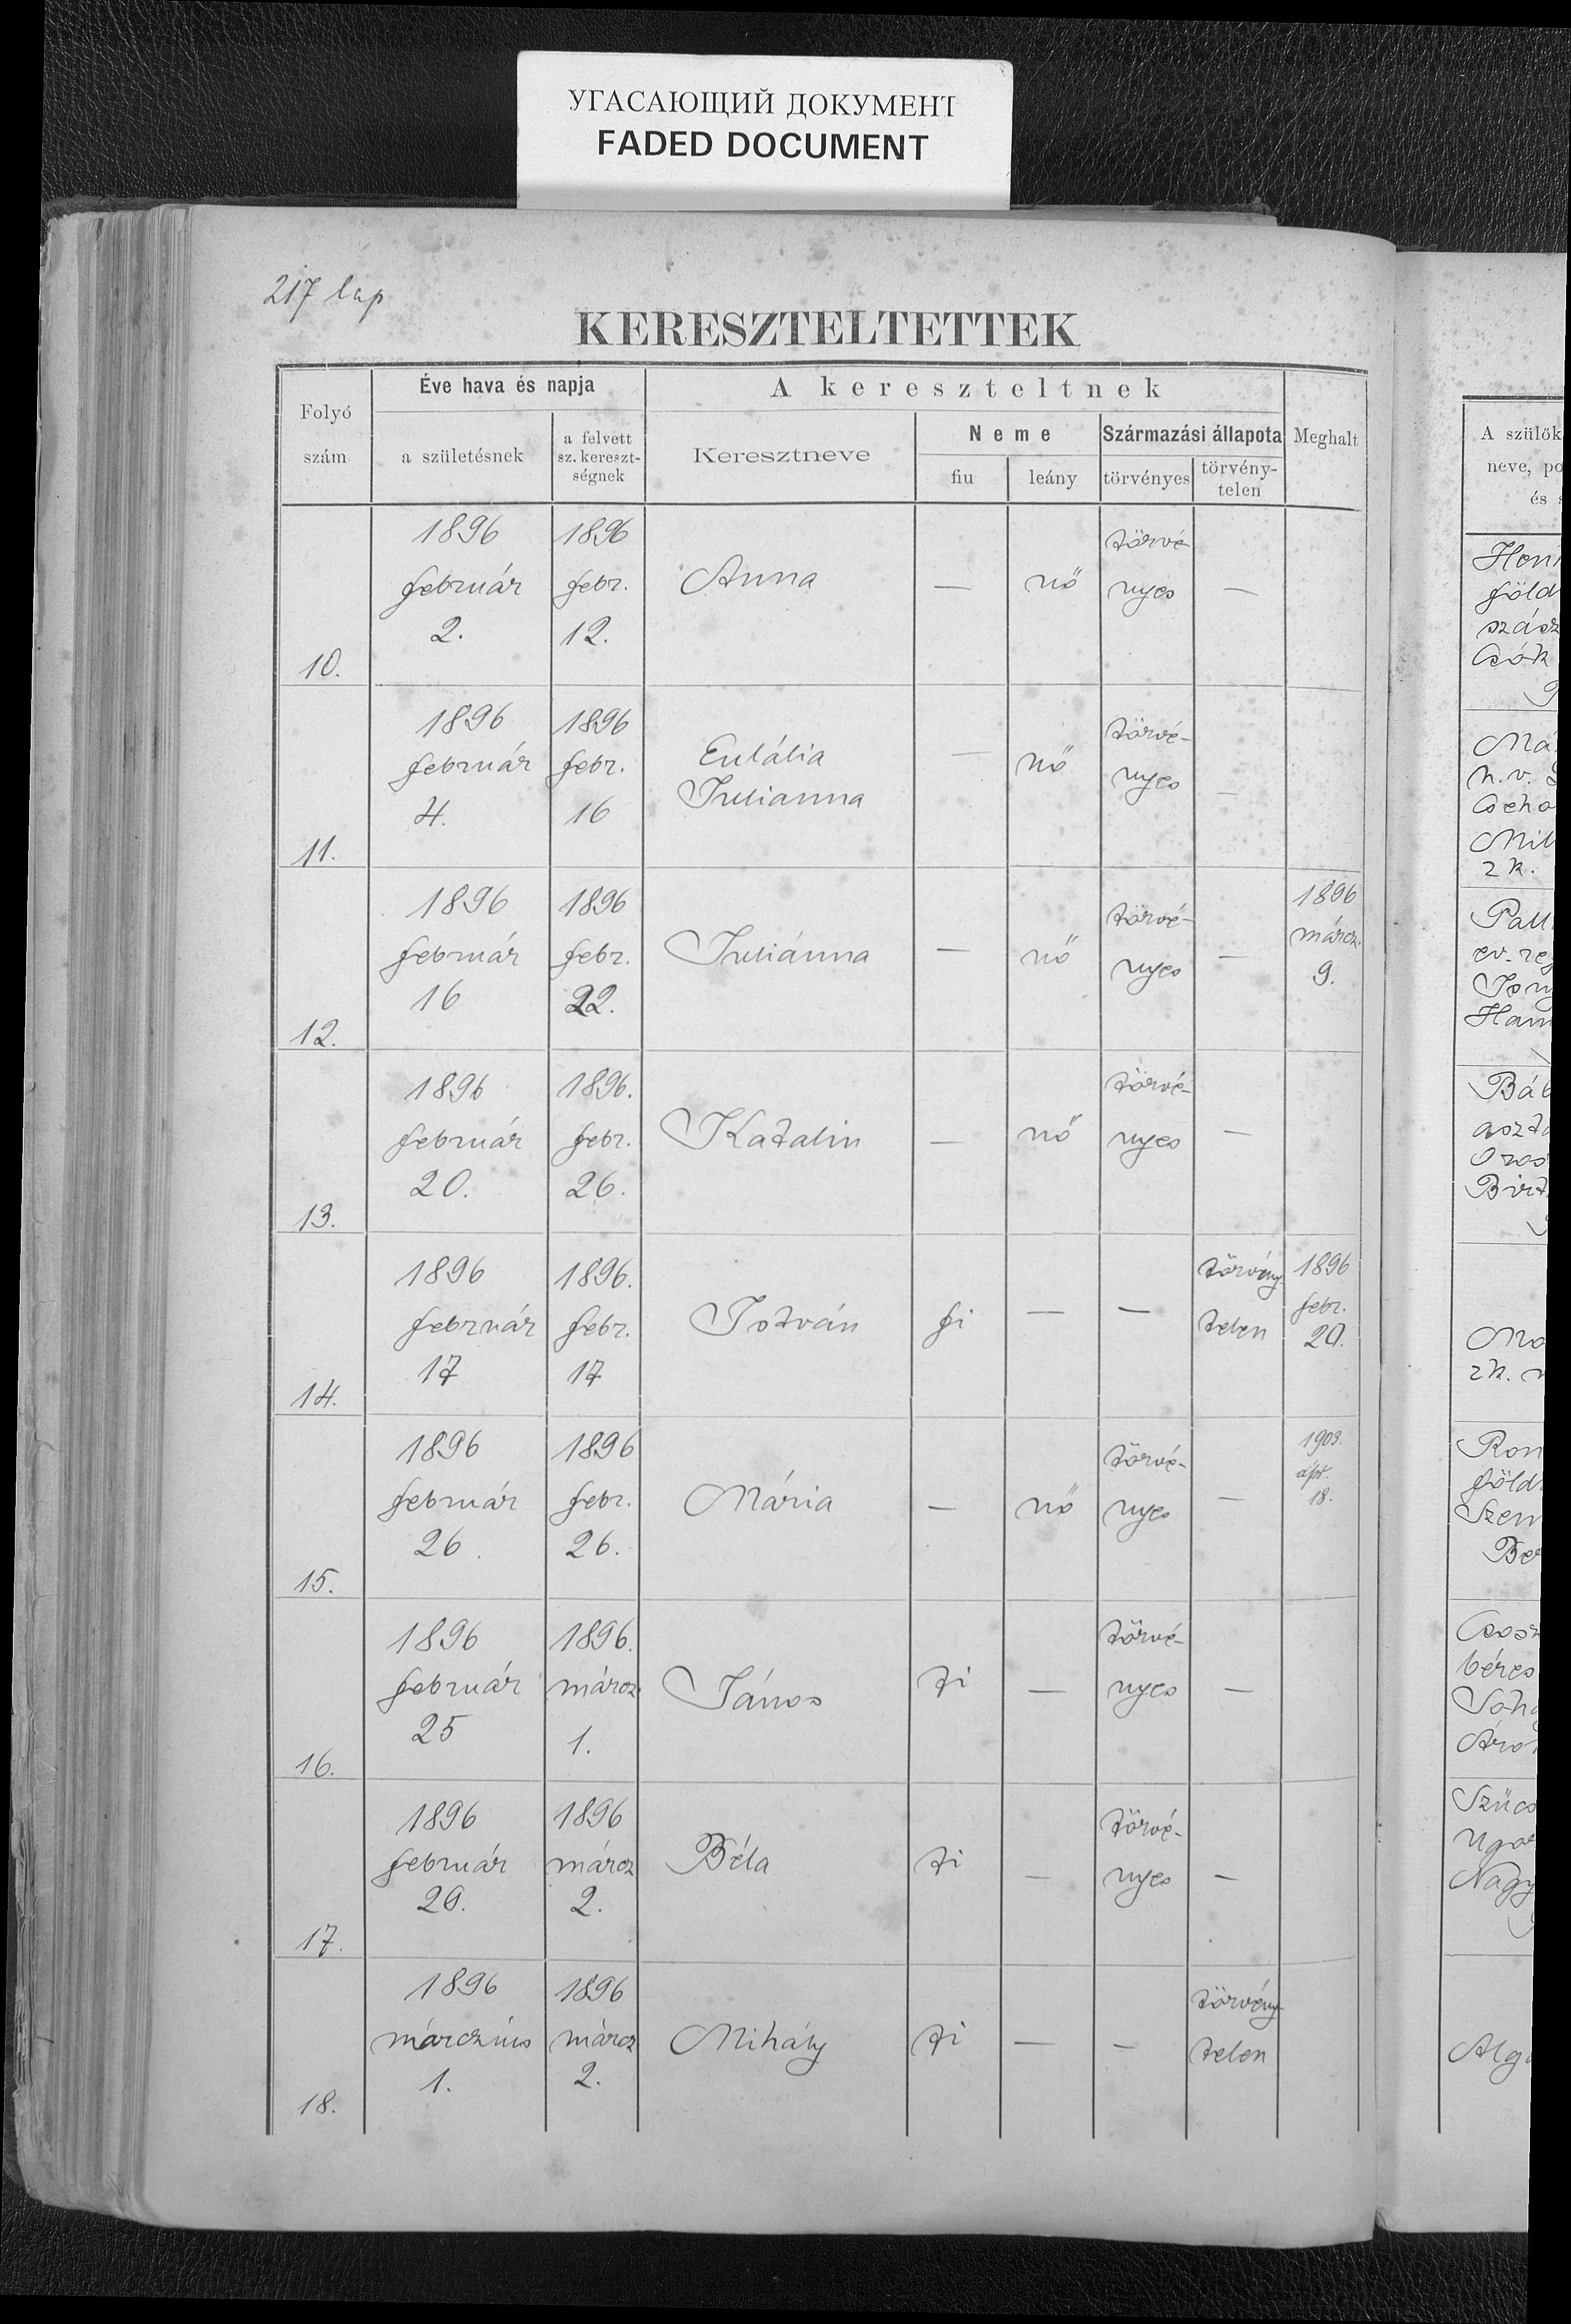 УГАСАЮЩИЙ ДОКУМЕНТ
FADED DOCUMENT
217 lap
KERESZTELTETTEK
Folyó
szám
Éve hava és napja
a születésnek
a felvett
sz. kereszt-
ségnek
A kereszteltnek
Keresztneve
Neme
fiu
leány
Származási állapota
törvényes
törvény-
telen
Meghalt
A szülők
neve, po
és
10.
1896
február
2.
1896
febr.
12.
Anna
—
nő
törvé-
nyes
—
11.
1896
február
4.
1896
febr.
16
Eulália
Julianna
—
nő
törvé-
nyes
—
12.
1896
február
16
1896
febr.
22.
Juliánna
—
nő
törvé-
nyes
—
1896
márcz.
9.
13.
1896
február
20.
1896.
febr.
26.
Katalin
—
nő
törvé-
nyes
—
14.
1896
február
17
1896.
febr.
17
István
fi
—
—
törvény-
telen
1896
febr.
20.
15.
1896
február
26.
1896
febr.
26.
Mária
—
nő
törvé-
nyes
—
1903.
ápr.
18.
16.
1896
február
25
1896.
márcz.
1.
János
fi
—
törvé-
nyes
—
17.
1896
február
29.
1896
márcz
2.
Béla
fi
—
törvé-
nyes
—
18.
1896
márczius
1.
1896
márcz
2.
Mihály
fi
—
—
törvény-
telen
föld
szász
Csók
n. v.
2 k.
ev. ref
béres
Szücs
Nagy